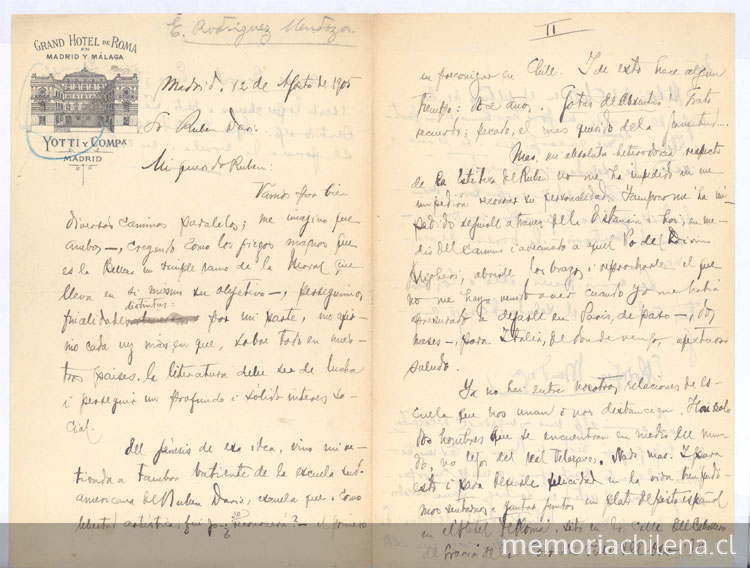 E. Rodríguez Mendoza
GRAND HOTEL DE ROMA
EN
MADRID Y MÁLAGA
YOTTI Y COMPª
MADRID
Madrid, 12 de Agosto de 1905
Sr Ruben Dario.
Mi querido Ruben:
Vamos por bien
diversos caminos paralelos; me imagino que
ambos—, creyendo como los griegos magnos que
es la Belleza un simple ramo de la Moral que
lleva en si misma su objetivo—, perseguimos
distintas:
finalidades por mi parte, me
mo cada vez más en que, sobre todo en nues-
tros paises, la literatura debe ser de lucha
i perseguir un profundo i sólido interes so-
cial.
Del génesis de esa idea, vino mi re-
tirada a tambor batiente de la escuela sud-
americana de Ruben Dario, escuela que, como
libertad artística, fui yo—? — el primero
II
en preconizar en Chile. I de esto hace algun
tiempo: doce años. Grato
recuerdo; pecado, el mas querido de la juventud...
Mas, mi absoluta heterodoxia respecto
de la Estética de Ruben no me ha impedido ni me
impedirá reconocer su personalidad. Tampoco me ha im-
pedido seguirle a traves de la distancia i hoi, en me-
dio del camino i adecuado a aquel
abrirle los brazos i reprocharle el que
no me haya venido a ver cuando yo me habia
apresurado a dejarle en Paris, de paso—, dos
meses—, para Italia, de donde vengo, afectuoso
saludo.
Ya no hai entre nosotros relaciones de es-
cuela que nos unan o nos distancien. Hai solo
dos hombres que se encuentran en medio del mun-
do, no lejos del real Velazquez. Nada mas. I para
esto i para desearle felicidad en la vida
mos sentarnos a juntar juntos un plato de pisto español
en el Hotel de Roma, sito en la calle del Caballero
de Gracia
www.memoriachilena.cl